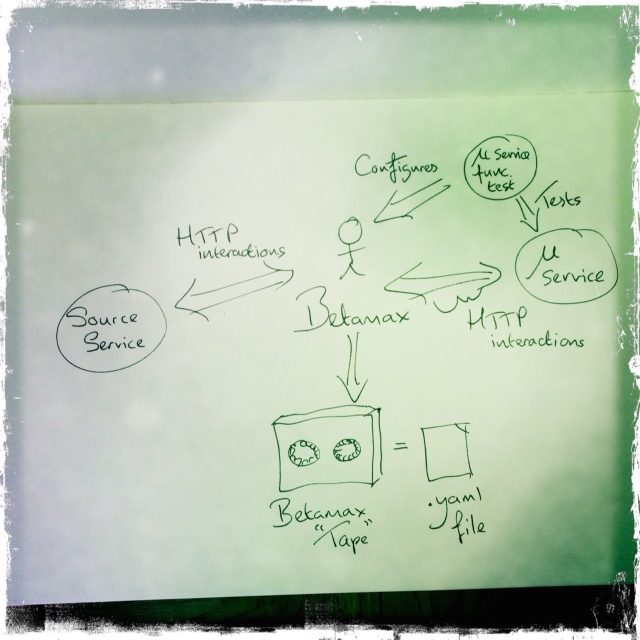 Configures
μ Service
func.
test
Tests
HTTP
interactions
μ
Service
Source
Service
Betamax
HTTP
interactions
=
Betamax
"Tape"
.yaml
file